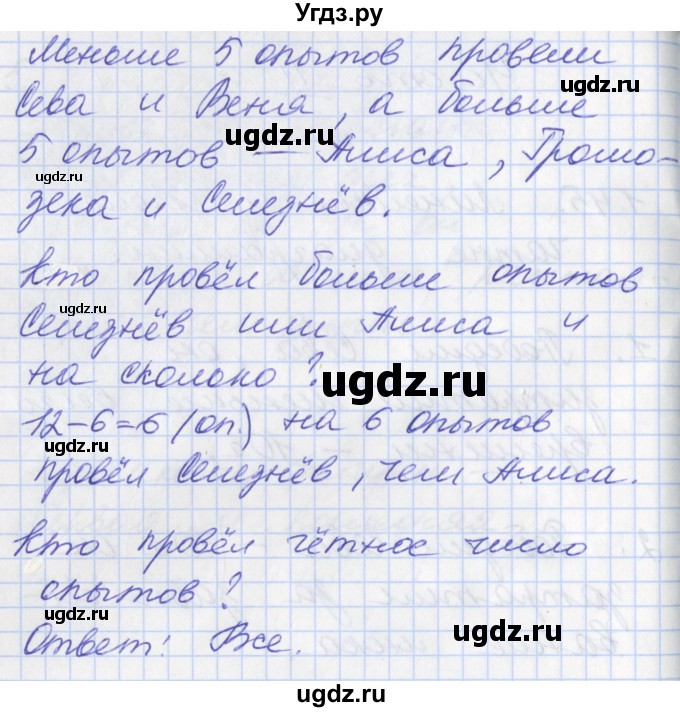 Угдз.ру
Меньше 5 опытов провели
Сева и Веня, а больше
5 опытов – Алиса, Громо-
зека и Селезнёв.
Кто провёл больше опытов
Селезнёв или Алиса и
на сколько?
12-6=6 (оп.) на 6 опытов
провёл Селезнёв, чем Алиса.
Кто провёл чётное число
опытов?
Ответ: Все.
ugdz.ru
ugdz.ru
ugdz.ru
ugdz.ru
ugdz.ru
ugdz.ru
ugdz.ru
ugdz.ru
ugdz.ru
ugdz.ru
ugdz.ru
ugdz.ru
ugdz.ru